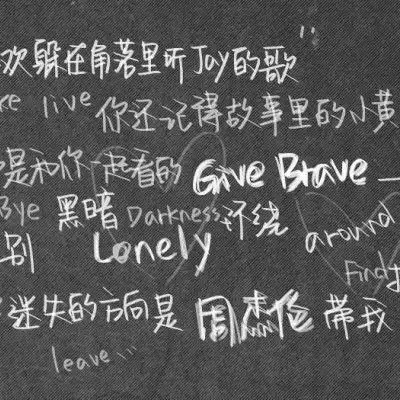 欢躲在角落里听Jay的歌"
ke live 你还记得故事里的小黄
是和你一起看的 Give Brave —
Bye 黑暗 Darkness 环绕 around
别 Lonely
Find
迷失的方向是 周杰伦 带我
leave ...